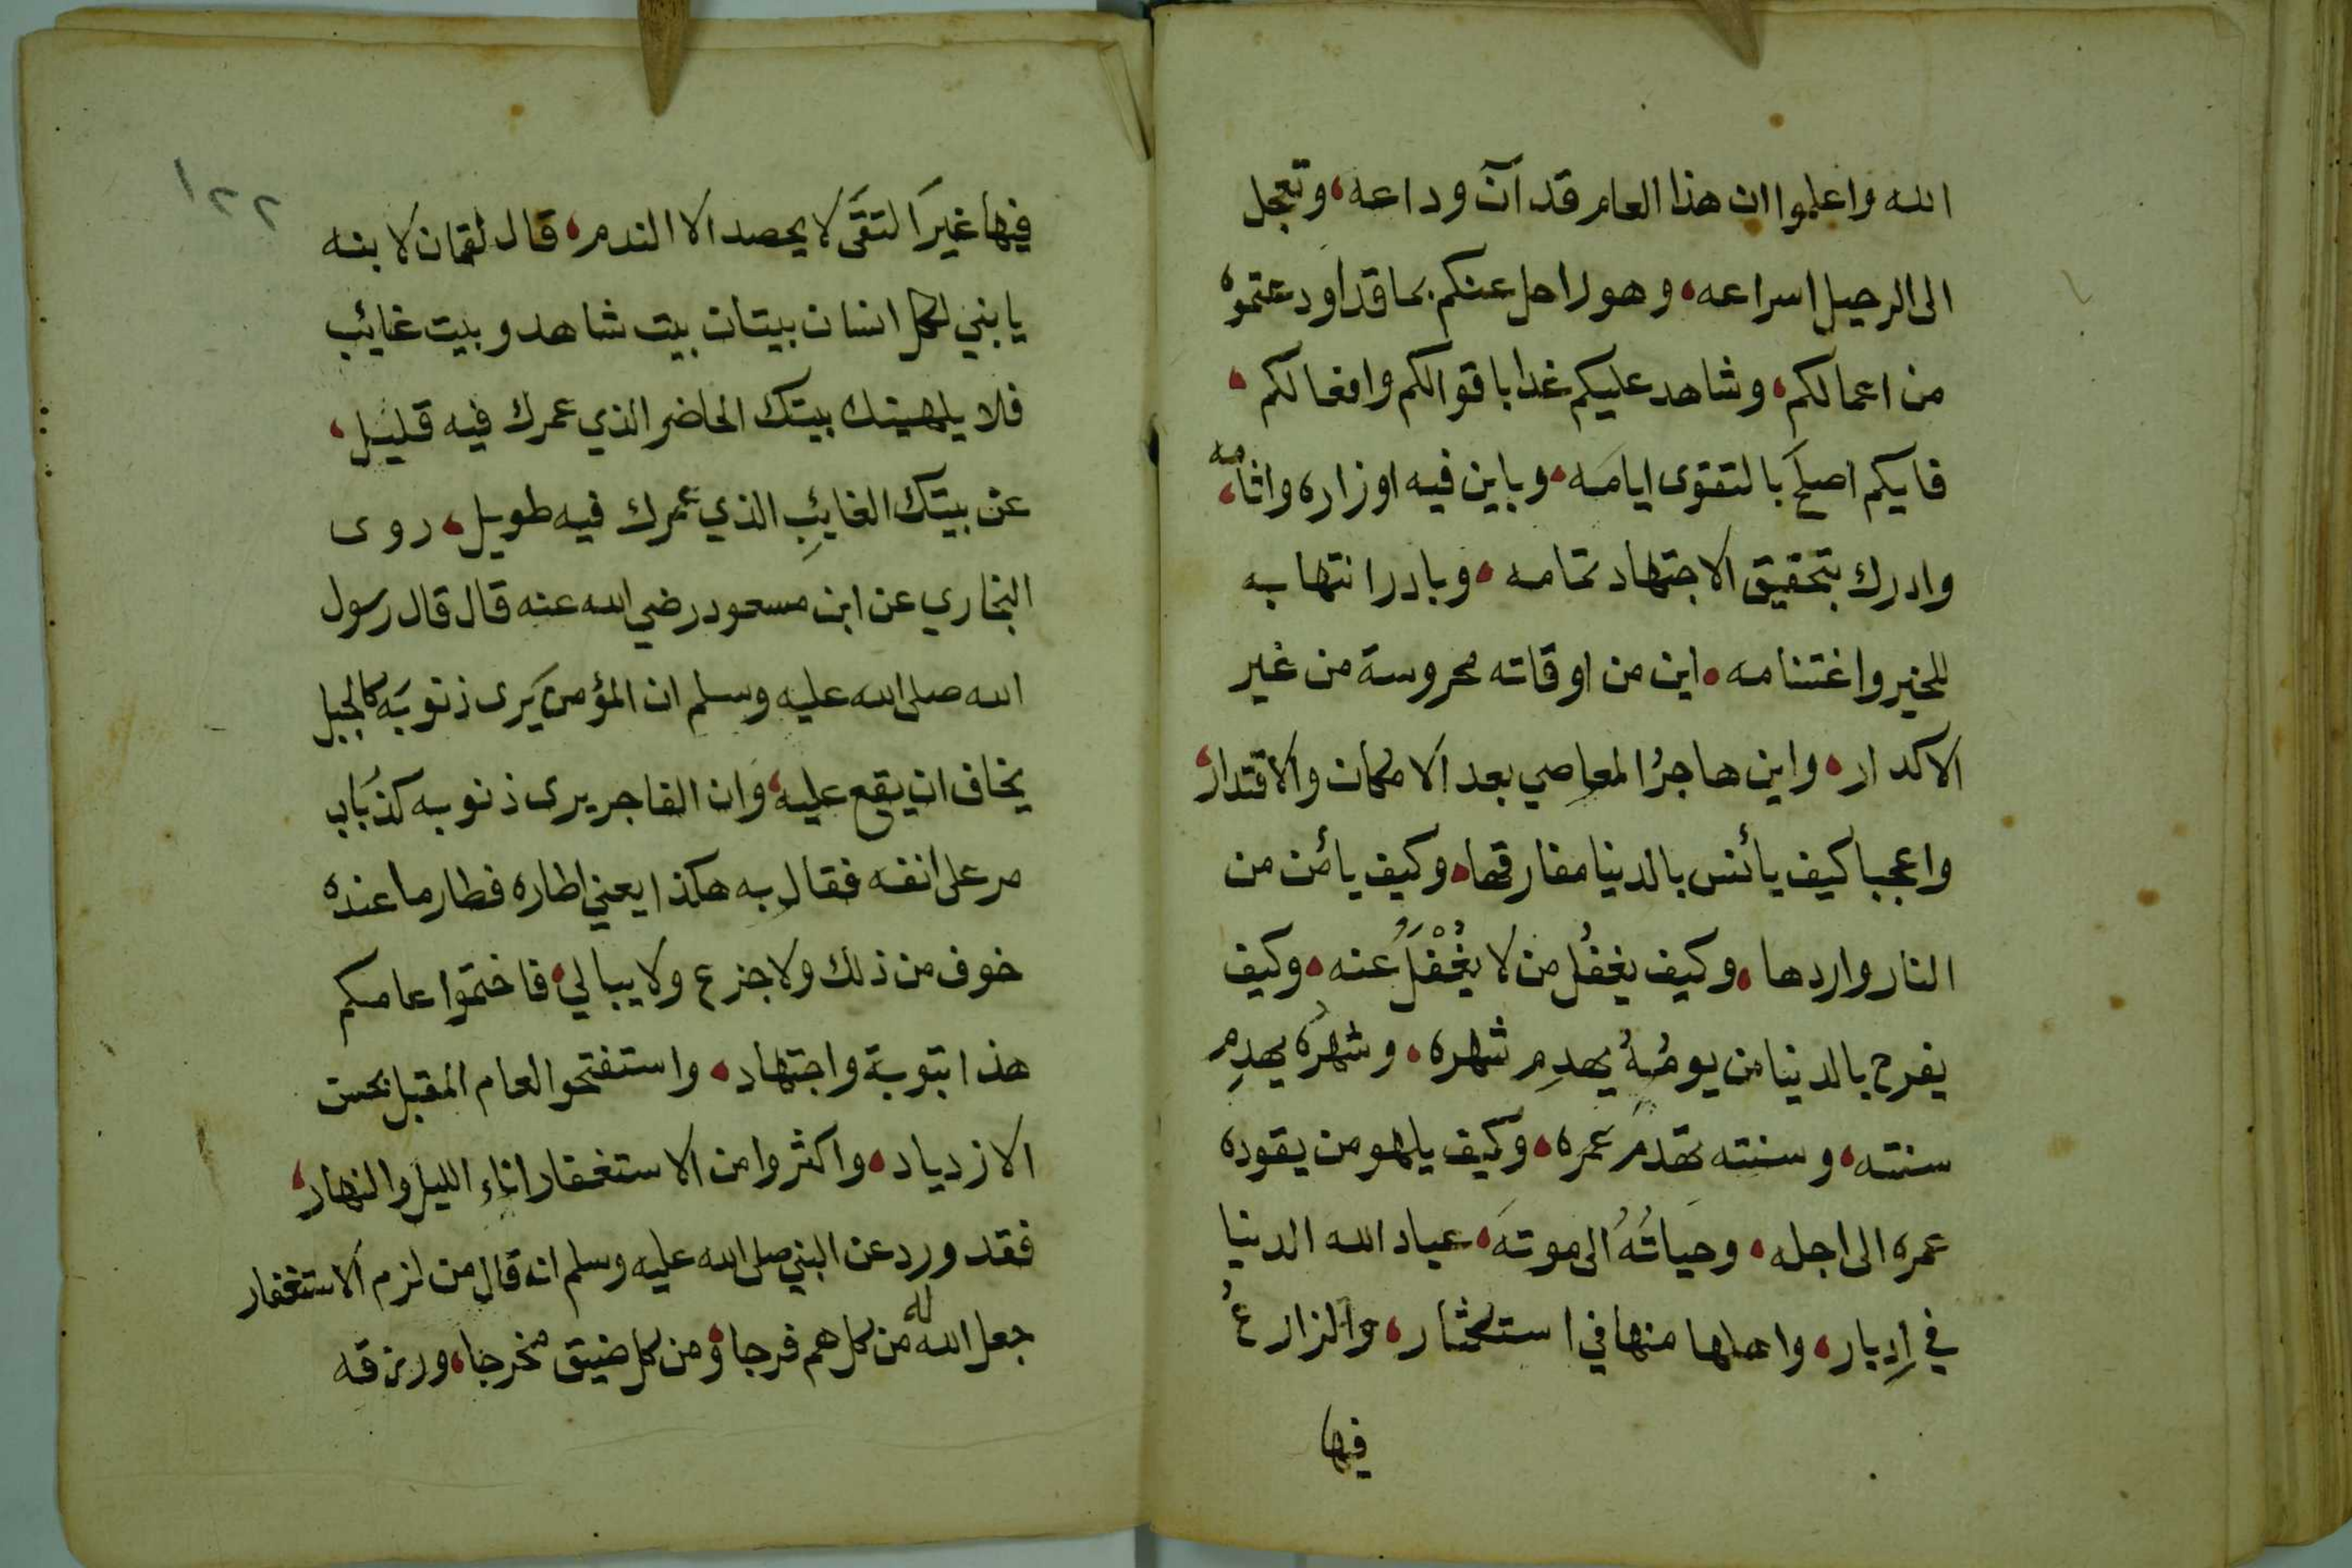 الله واعلموا ان هذا العام قد آن وداعه، وتعجل
الى الرحيل اسراعه، وهو راحل عنكم بما قد اودعتموه
من اعمالكم، وشاهد عليكم غدا باقوالكم وافعالكم،
فايكم اصلحَ بالتقوى ايامَه، وباين فيه اوزاره واثامه،
وادرك بتحقيق الاجتهاد تمامه، وبادر انتهابه
للخير واغتنامه، اين من اوقاته محروسة من غير
الاكدار، واين هاجرُ المعاصي بعد الامكان والاقتدار،
واعجبا كيف يأنس بالدنيا مفارقها، وكيف يأمن من
النار واردها، وكيف يغفُل من لا يُغْفَلُ عنه، وكيف
يفرح بالدنيا من يومُهُ يهدِم شهره، وشهرُه يهدِم
سنته، وسنته تهدم عمره، وكيف يلهو من يقوده
عمره الى اجله، وحياتُهُ الى موته، عباد الله الدنيا
في اِدبار، واهلها منها في استكثار، والزارعُ
فيها
١٢٢
فيها غيرَ التقَى لا يحصد الا الندم، قال لقمان لابنه
يا بني لكل انسان بيتان بيت شاهد وبيت غائب
فلا يلهينك بيتك الحاضر الذي عمرك فيه قليل،
عن بيتك الغائبِ الذي عمرك فيه طويل، روى
البخاري عن ابن مسعود رضي الله عنه قال قال رسول
الله صلى الله عليه وسلم ان المؤمن يَرى ذنوبَه كالجبل
يخاف ان يقع عليه، وان الفاجر يرى ذنوبه كذُبَاب
مر على انفه فقال به هكذا يعني اطاره فطار ما عنده
خوف من ذلك ولا جزع ولا يبالي، فاختموا عامكم
هذا بتوبة واجتهاد، واستفتحوا العام المقبل بحسن
الازدياد، واكثروا من الاستغفار اناء الليل والنهار،
فقد ورد عن النبي صلى الله عليه وسلم انه قال من لزم الاستغفار
جعل الله له من كل هم فرجا، ومن كل ضيق مخرجا، ورزقه